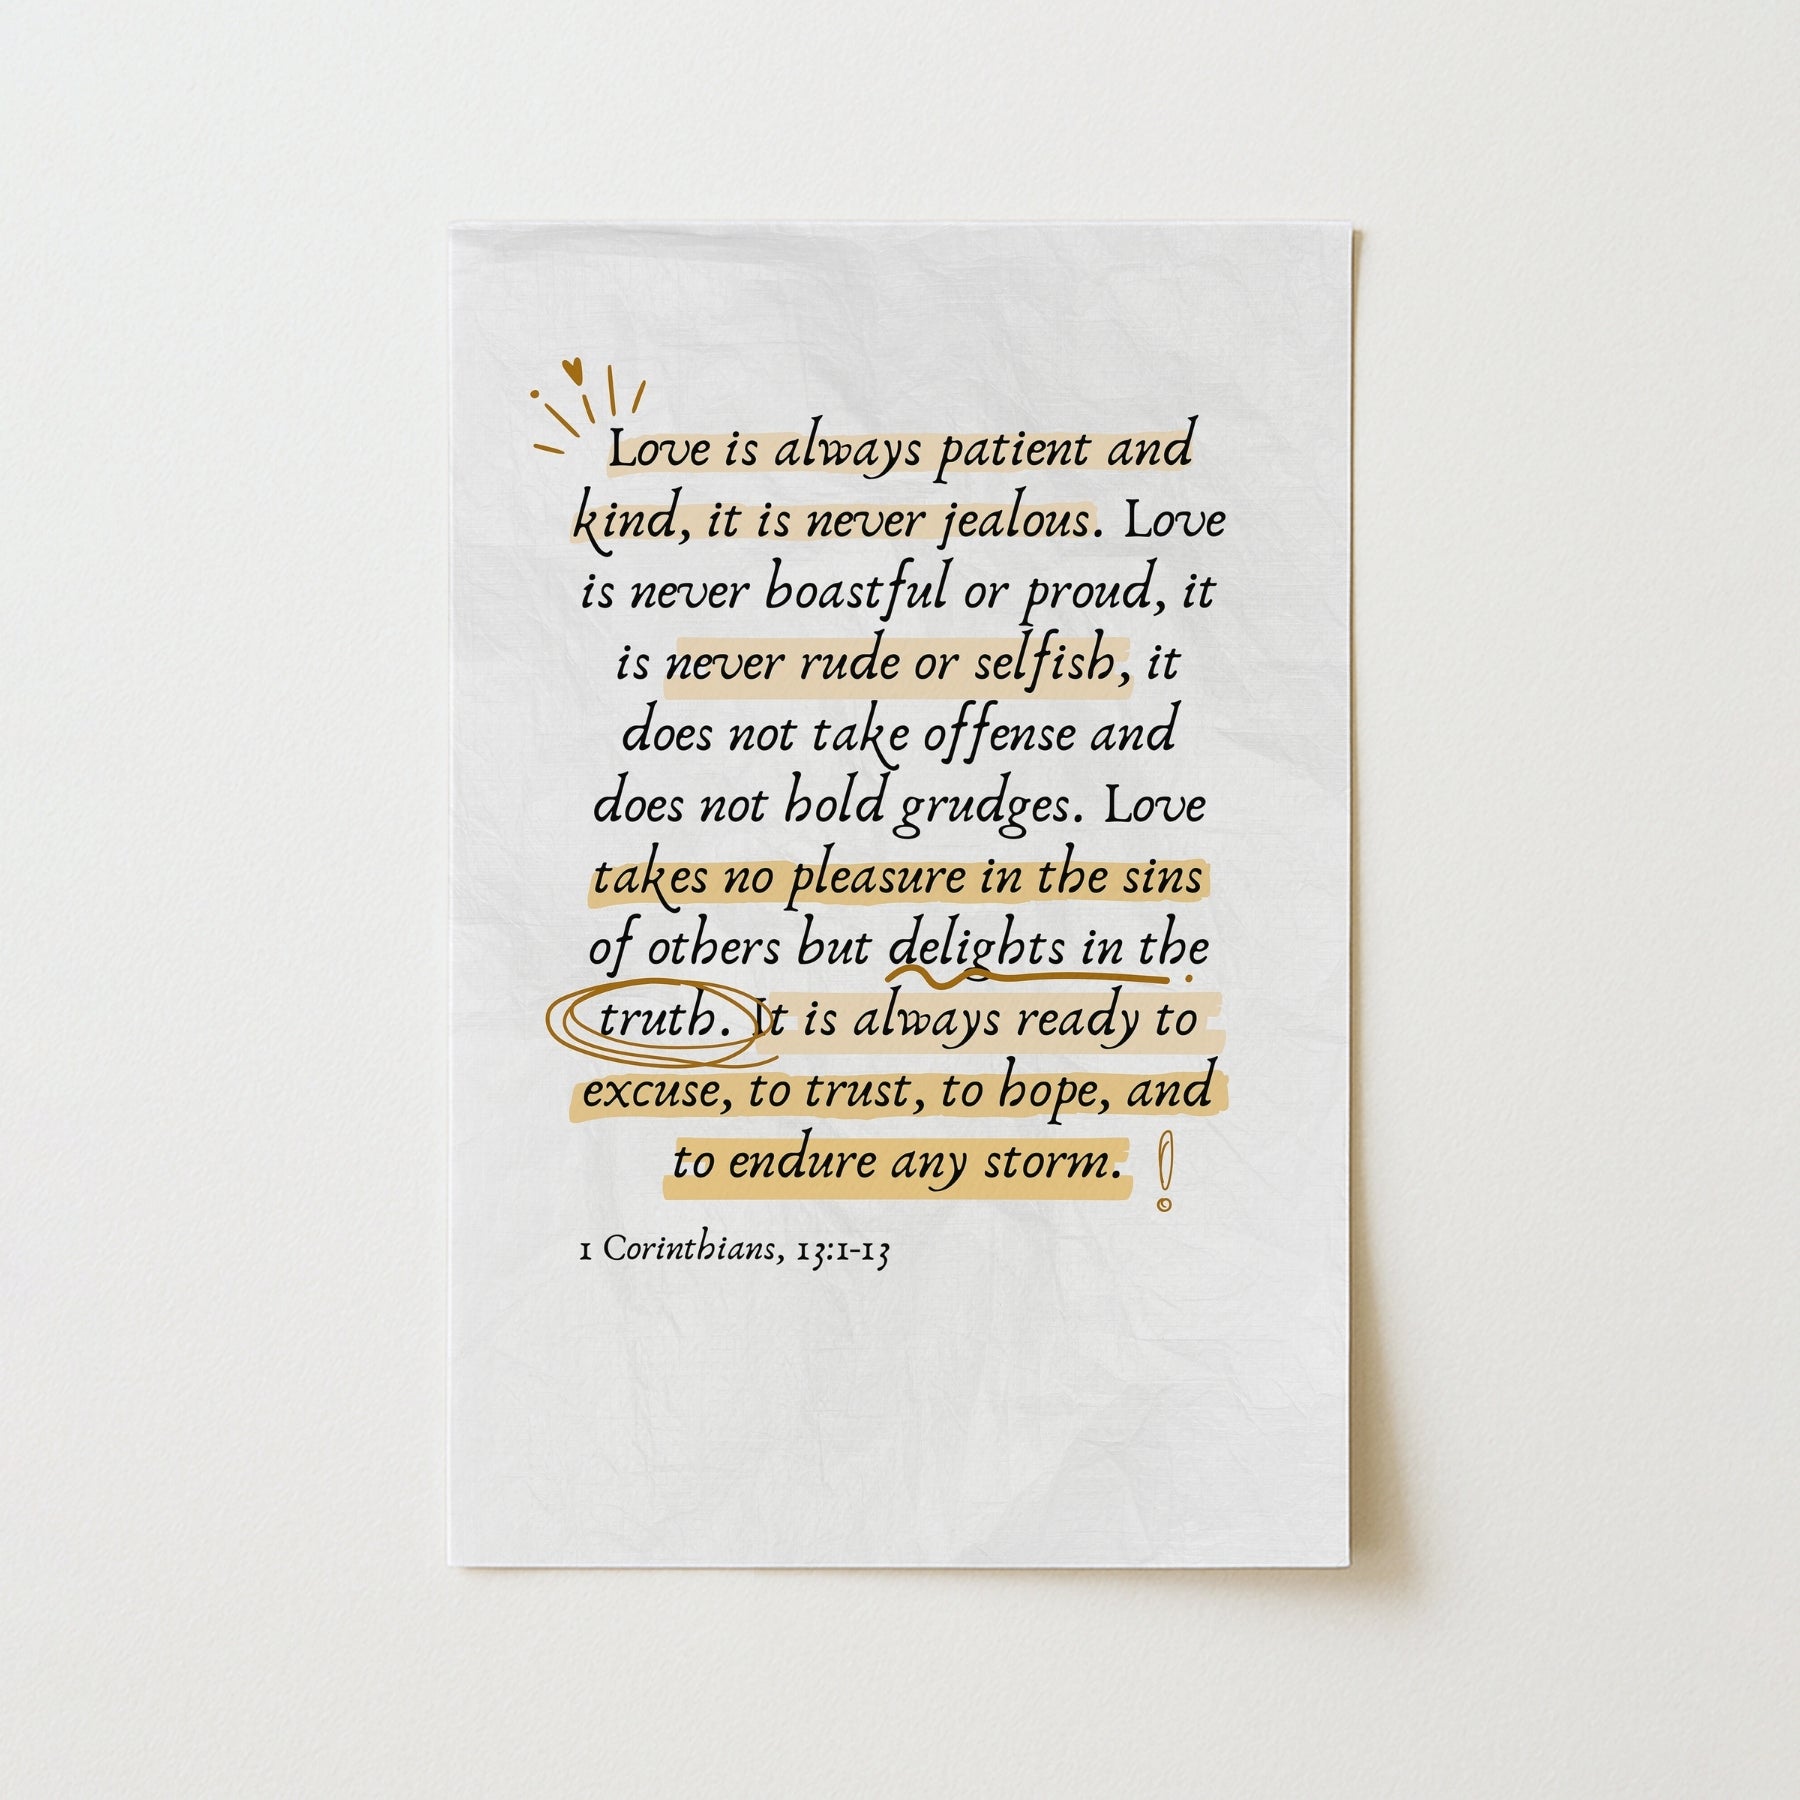 Love is always patient and
kind, it is never jealous. Love
is never boastful or proud, it
is never rude or selfish, it
does not take offense and
does not hold grudges. Love
takes no pleasure in the sins
of others but delights in the
truth. It is always ready to
excuse, to trust, to hope, and
to endure any storm. !
1 Corinthians, 13:1-13